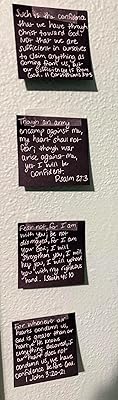 Such is the confidence
that we have through
Christ toward God.
Not that we are
sufficient in ourselves
to claim anything as
coming from us, but
our sufficiency is from
God. II Corinthians 3:4-5
Though an army
encamp against me,
my heart shall not
fear; though war
arise against me,
yet I will be
confident.
Psalm 27:3
Fear not, for I am
with you; be not
dismayed, for I am
your God; I will
strengthen you, I will
help you, I will uphold
you with my righteous
hand. Isaiah 41:10
For whenever our
hearts condemn us,
God is greater than our
hearts, & He knows
everything. Beloved, if
our heart does not
condemn us, we have
confidence before God.
1 John 3:20-21